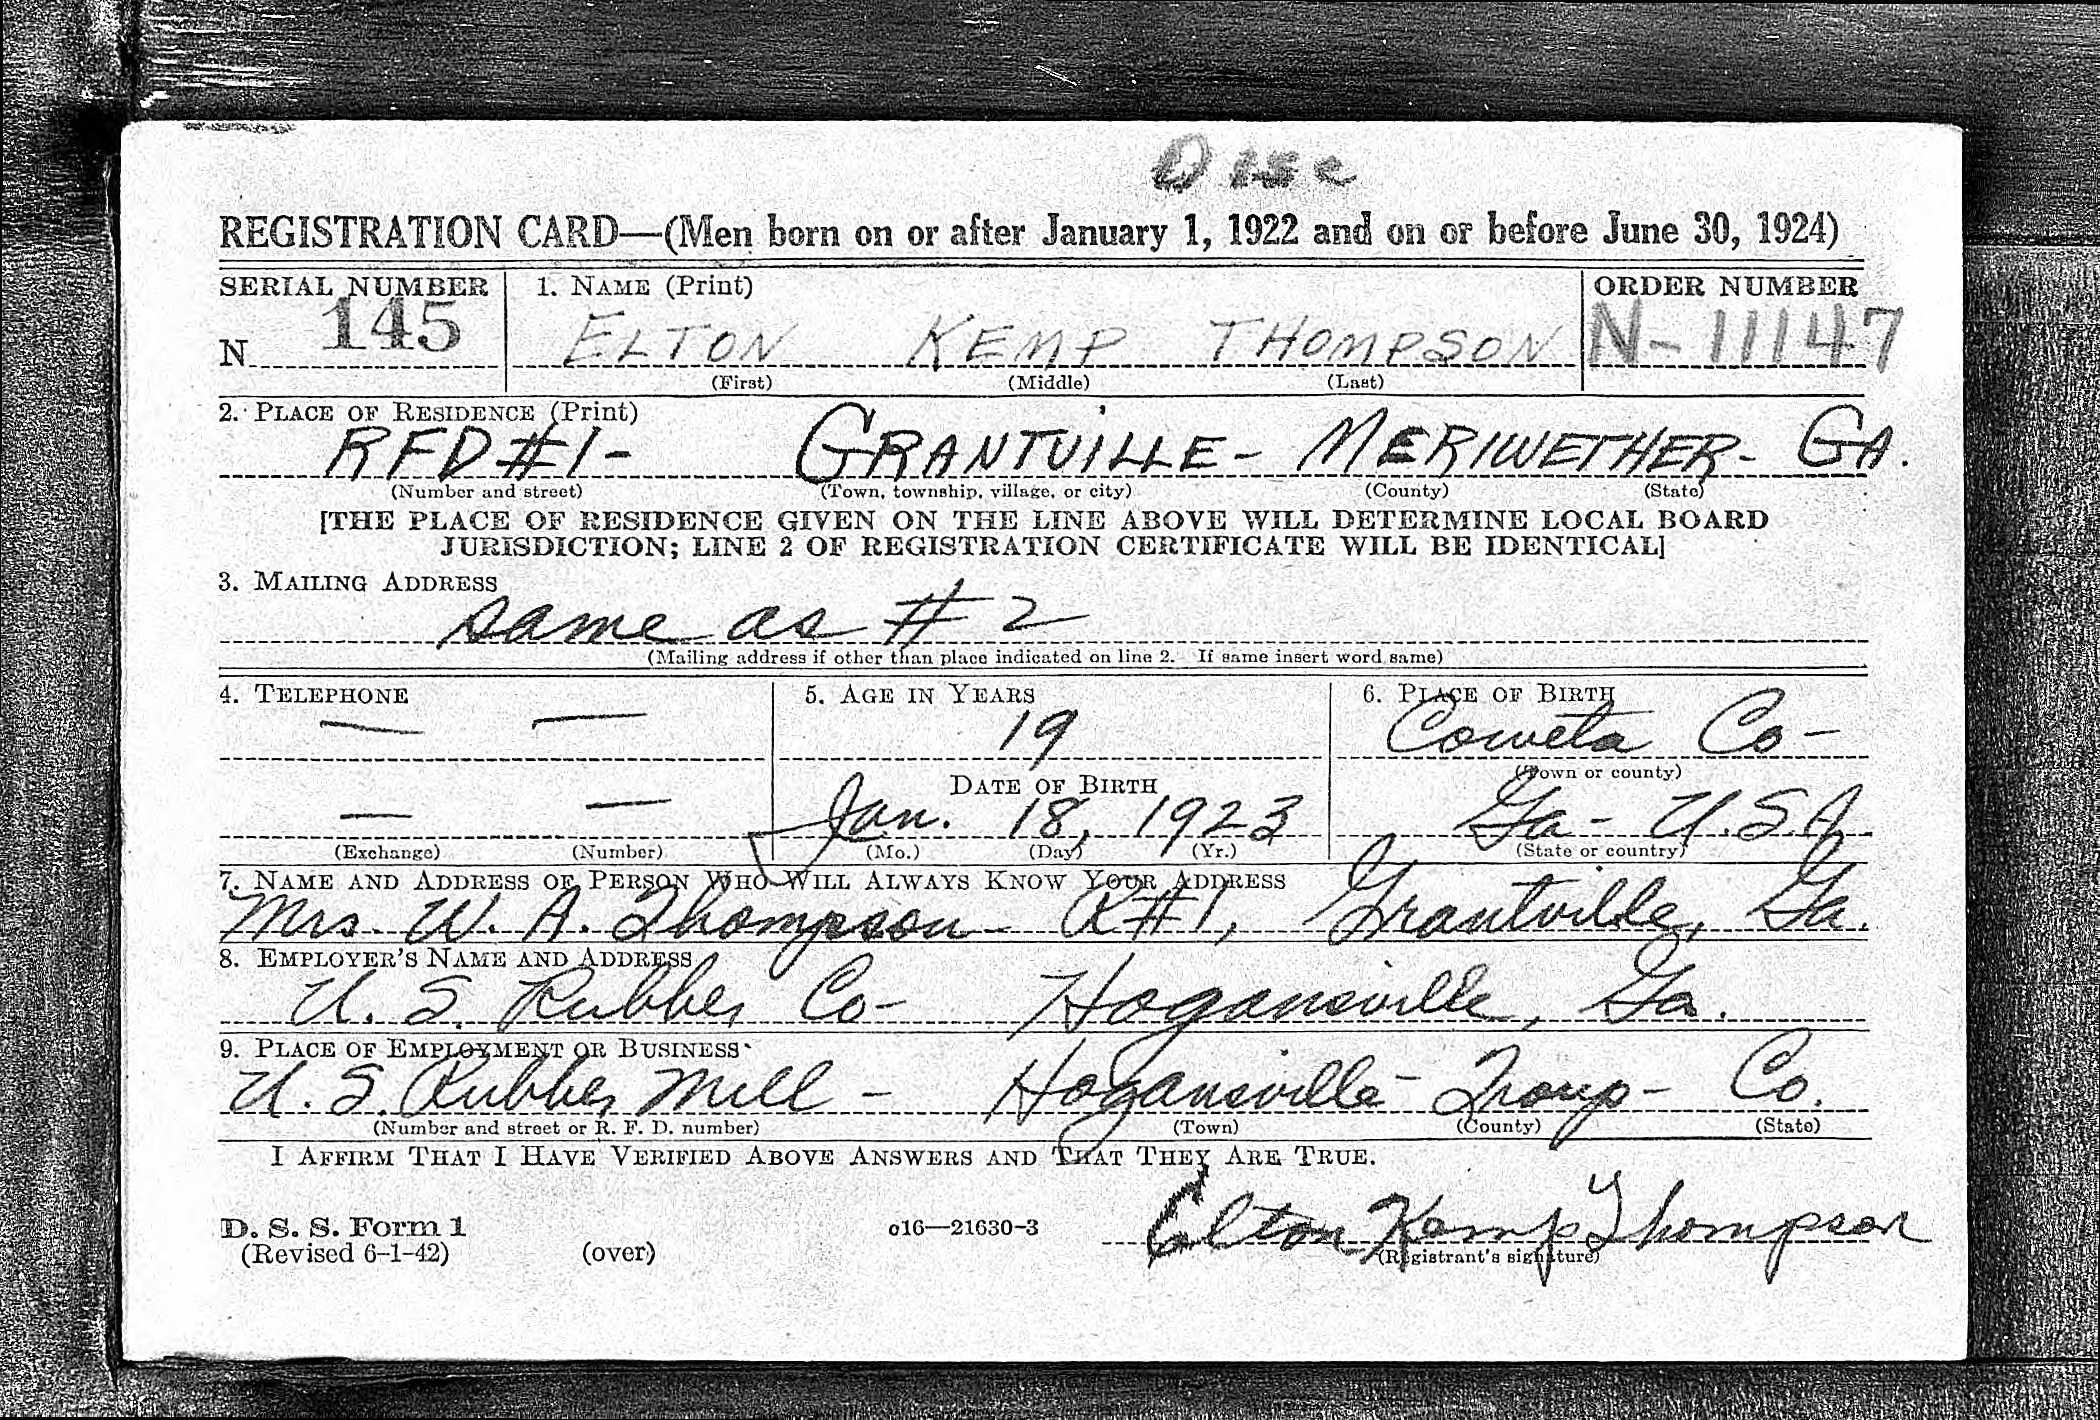 Disc
REGISTRATION CARD—(Men born on or after January 1, 1922 and on or before June 30, 1924)
SERIAL NUMBER 1. NAME (Print) ORDER NUMBER
N 145 ELTON KEMP THOMPSON N-11147
(First) (Middle) (Last)
2. PLACE OF RESIDENCE (Print)
RFD #1- GRANTVILLE- MERIWETHER- GA.
(Number and street) (Town, township, village, or city) (County) (State)
[THE PLACE OF RESIDENCE GIVEN ON THE LINE ABOVE WILL DETERMINE LOCAL BOARD
JURISDICTION; LINE 2 OF REGISTRATION CERTIFICATE WILL BE IDENTICAL]
3. MAILING ADDRESS
same as # 2
(Mailing address if other than place indicated on line 2. If same insert word same)
4. TELEPHONE 5. AGE IN YEARS 6. PLACE OF BIRTH
— — 19 Coweta Co-
DATE OF BIRTH (Town or county)
— — Jan. 18, 1923 Ga- U.S.A.
(Exchange) (Number) (Mo.) (Day) (Yr.) (State or country)
7. NAME AND ADDRESS OF PERSON WHO WILL ALWAYS KNOW YOUR ADDRESS
Mrs. W. A. Thompson- R#1, Grantville, Ga.
8. EMPLOYER'S NAME AND ADDRESS
U. S. Rubber Co- Hogansville, Ga.
9. PLACE OF EMPLOYMENT OR BUSINESS
U. S. Rubber Mill - Hogansville- Troup- Co.
(Number and street or R. F. D. number) (Town) (County) (State)
I AFFIRM THAT I HAVE VERIFIED ABOVE ANSWERS AND THAT THEY ARE TRUE.
Elton Kemp Thompson
D. S. S. Form 1 c16—21630-3 (Registrant's signature)
(Revised 6-1-42) (over)